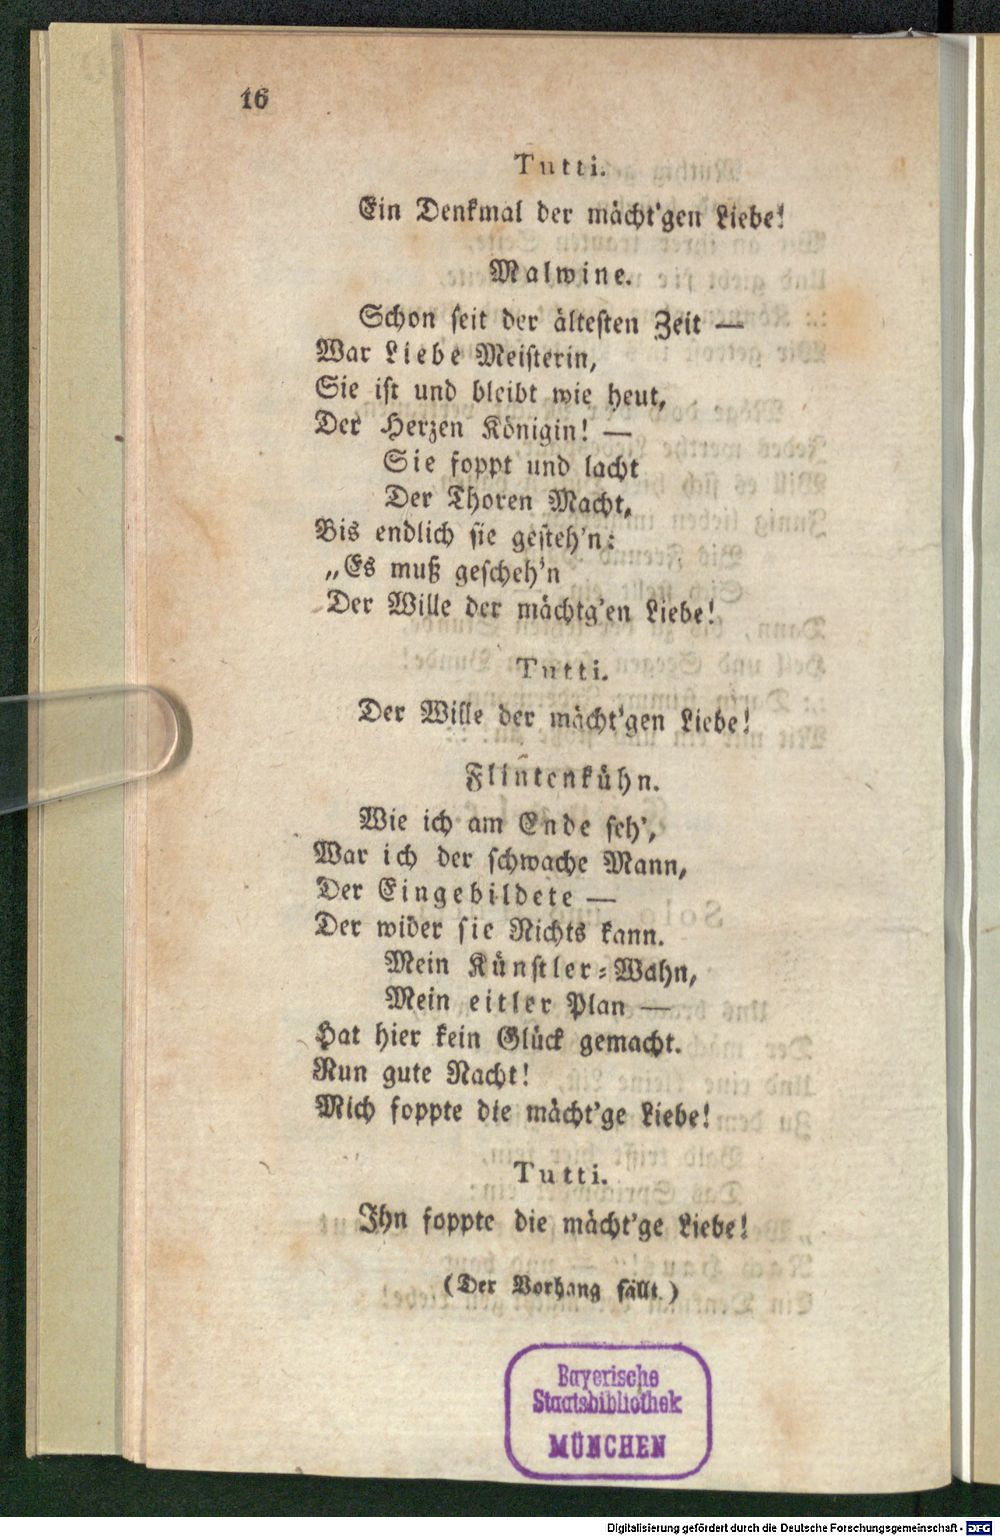 16
Tutti.
Ein Denkmal der mächt'gen Liebe!
Malwine.
Schon seit der ältesten Zeit —
War Liebe Meisterin,
Sie ist und bleibt wie heut,
Der Herzen Königin! —
Sie foppt und lacht
Der Thoren Macht,
Bis endlich sie gesteh'n:
„Es muß gescheh'n
Der Wille der mächtg'en Liebe!
Tutti.
Der Wille der mächt'gen Liebe!
Flintenkühn.
Wie ich am Ende seh',
War ich der schwache Mann,
Der Eingebildete —
Der wider sie Nichts kann.
Mein Künstler-Wahn,
Mein eitler Plan —
Hat hier kein Glück gemacht.
Nun gute Nacht!
Mich foppte die mächt'ge Liebe!
Tutti.
Ihn foppte die mächt'ge Liebe!
(Der Vorhang fällt.)
Bayerische
Staatsbibliothek
MÜNCHEN
Digitalisierung gefördert durch die Deutsche Forschungsgemeinschaft - DFG